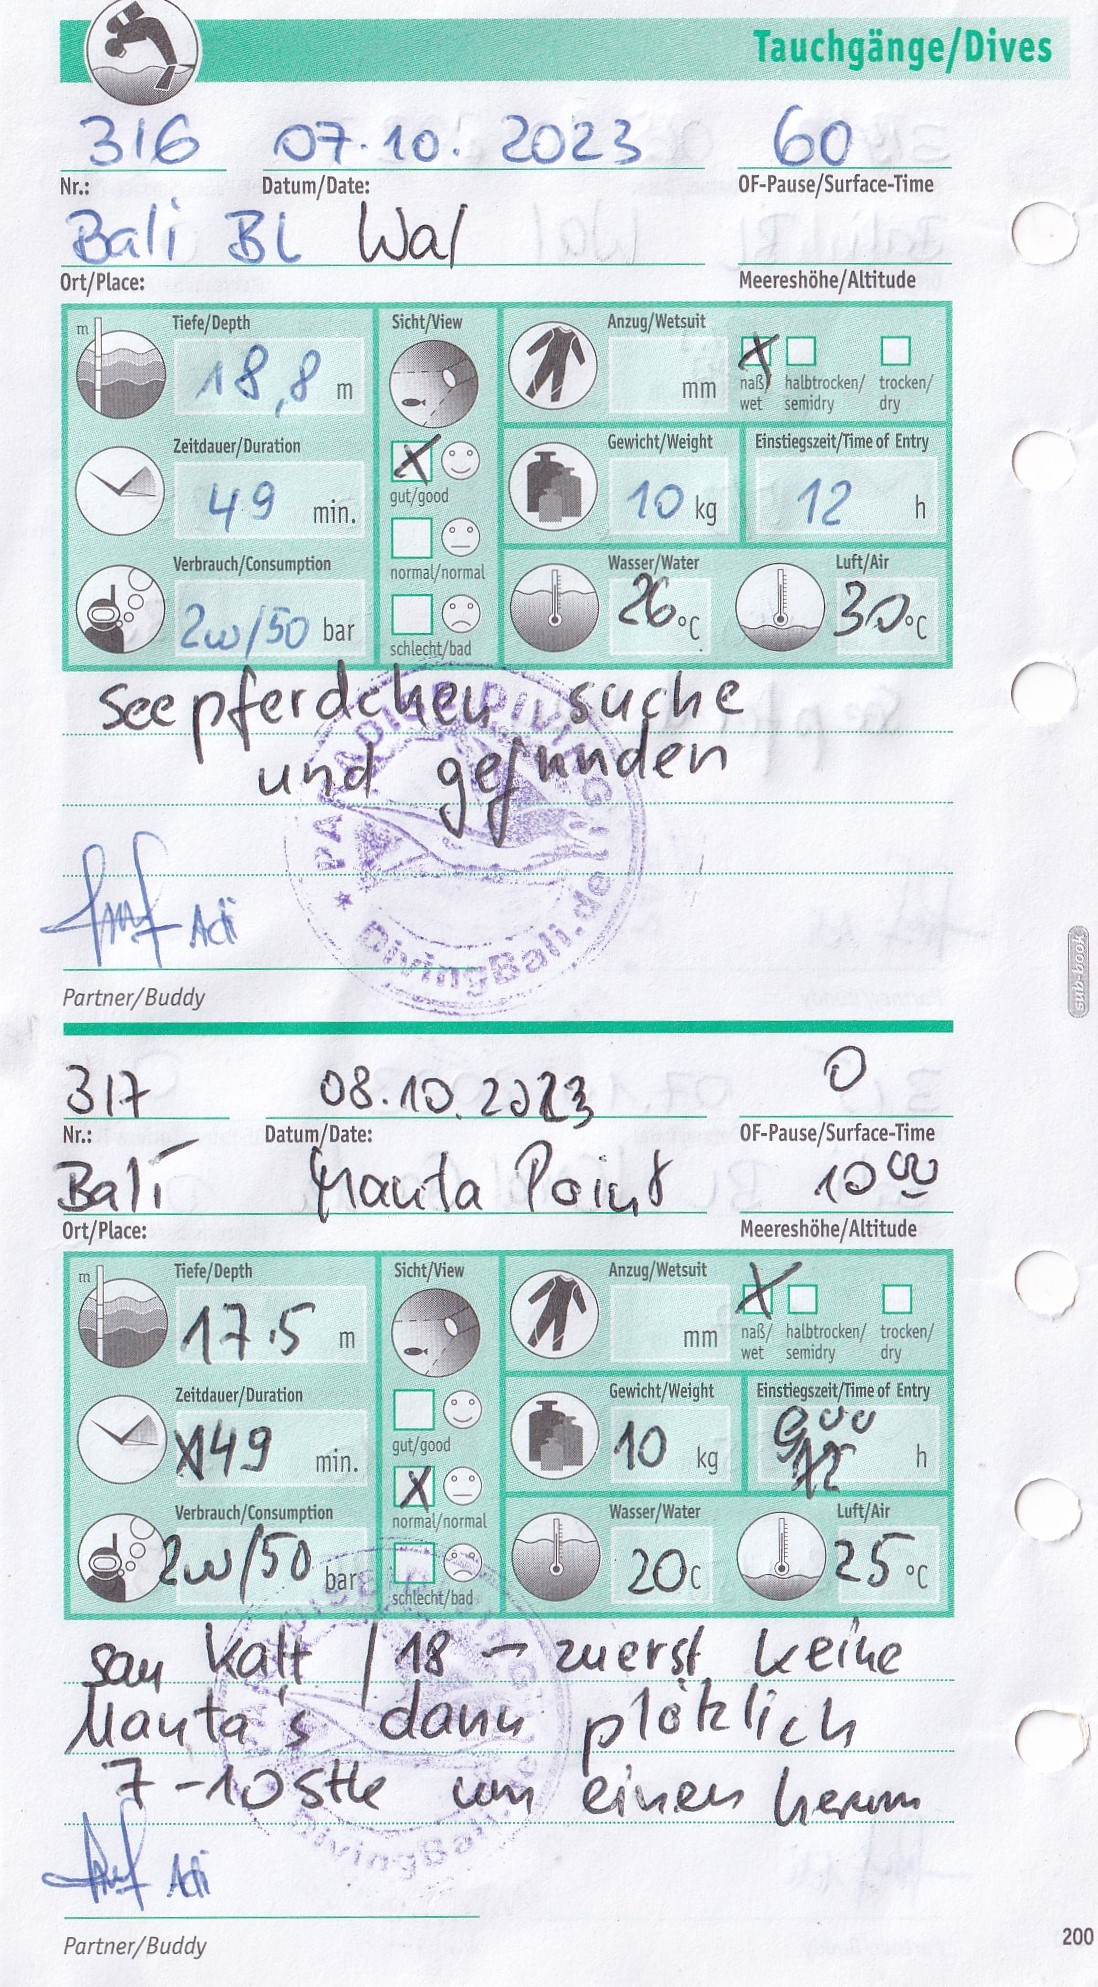 Tauchgänge/Dives
316 07.10.2023 60
Nr.: Datum/Date: OF-Pause/Surface-Time
Bali BL Wal
Ort/Place: Meereshöhe/Altitude
m Tiefe/Depth Sicht/View Anzug/Wetsuit
18,8 m mm X
naß/ halbtrocken/ trocken/
wet semidry dry
Zeitdauer/Duration Gewicht/Weight Einstiegszeit/Time of Entry
X
49 min. gut/good 10 kg 12 h
Verbrauch/Consumption normal/normal Wasser/Water Luft/Air
2w/50 bar 26 °C 30 °C
schlecht/bad
Seepferdchen suche
und gefunden
PARADISE DIVING
DivingBali.de
Adi
Partner/Buddy
sub-book
317 08.10.2023 0
Nr.: Datum/Date: OF-Pause/Surface-Time
Bali Manta Point 10 00
Ort/Place: Meereshöhe/Altitude
m Tiefe/Depth Sicht/View Anzug/Wetsuit
17.5 m mm X
naß/ halbtrocken/ trocken/
wet semidry dry
Zeitdauer/Duration Gewicht/Weight Einstiegszeit/Time of Entry
49 min. gut/good 10 kg h
X
Verbrauch/Consumption normal/normal Wasser/Water Luft/Air
2w/50 bar 20C 25 °C
schlecht/bad
sau kalt / 18 - zuerst keine
Manta's dann plötzlich
7-10 Stk um einen herum
DivingBali.de
Adi
Partner/Buddy
200